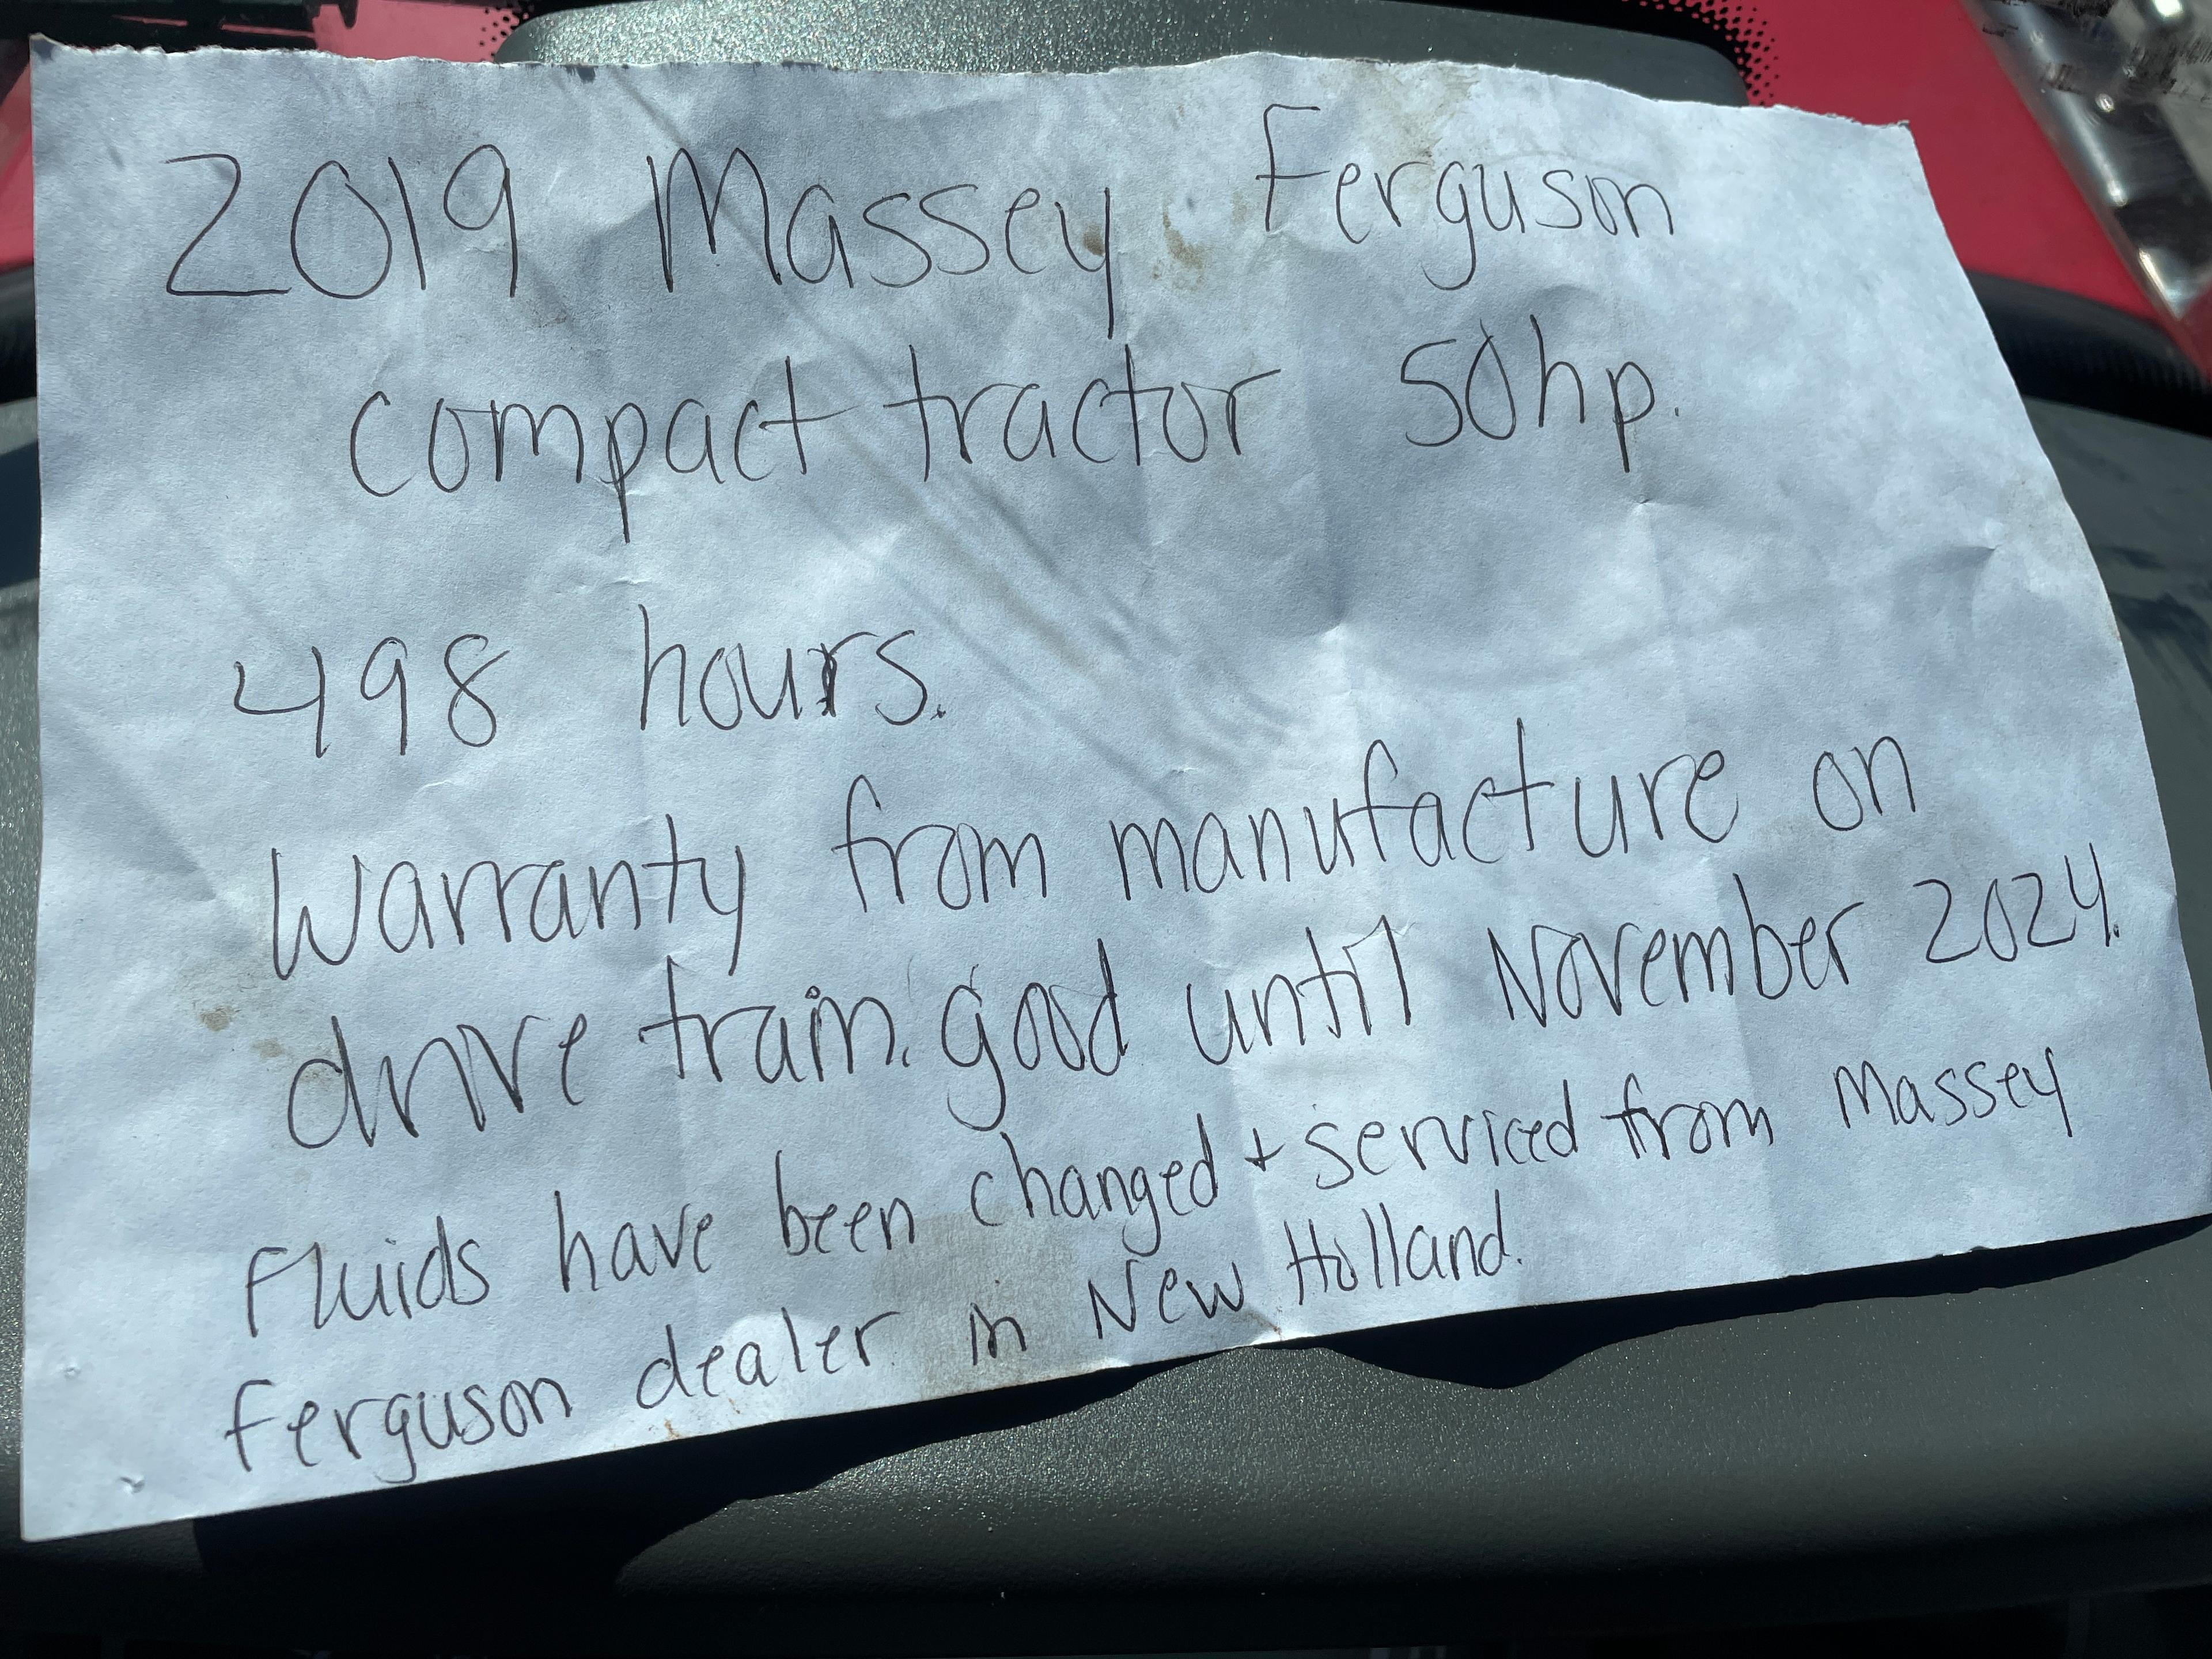 2019 Massey Ferguson
compact tractor 50hp.
498 hours.
Warranty from manufacture on
drive train. good until November 2024.
Fluids have been changed + serviced from Massey
Ferguson dealer in New Holland.